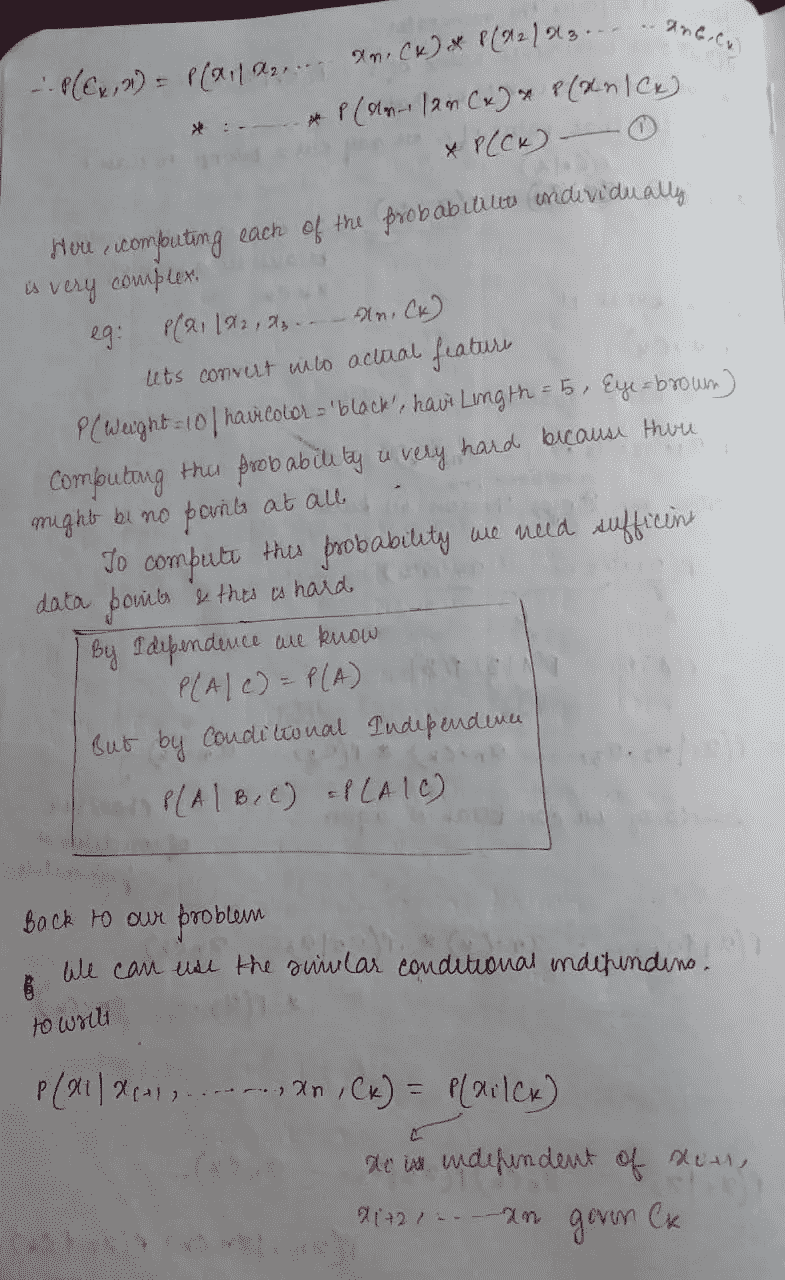 ∴ P(Ck, x) = P(x1 | x2, .... xn, Ck) * P(x2 | x3 ...... xn, Ck)
* ...... * P(xn-1 | xn Ck) * P(xn | Ck)
* P(Ck) —— ①
Here, computing each of the probabilities individually
is very complex.
eg: P(x1 | x2, x3 ..... xn, Ck)
lets convert into actual feature
P(Weight = 10 | haircolor = 'black', hair Length = 5, Eye = brown)
Computing this probability is very hard because there
might be no points at all.
To compute this probability we need sufficient
data points & this is hard.
By Idependence we know
P(A | C) = P(A)
But by Conditional Independence
P(A | B, C) = P(A | C)
Back to our problem
We can use the similar conditional independenc.
to write
P(xi | xi+1, ........, xn, Ck) = P(xi | Ck)
xi is independent of xi+1,
xi+2, .... xn given Ck